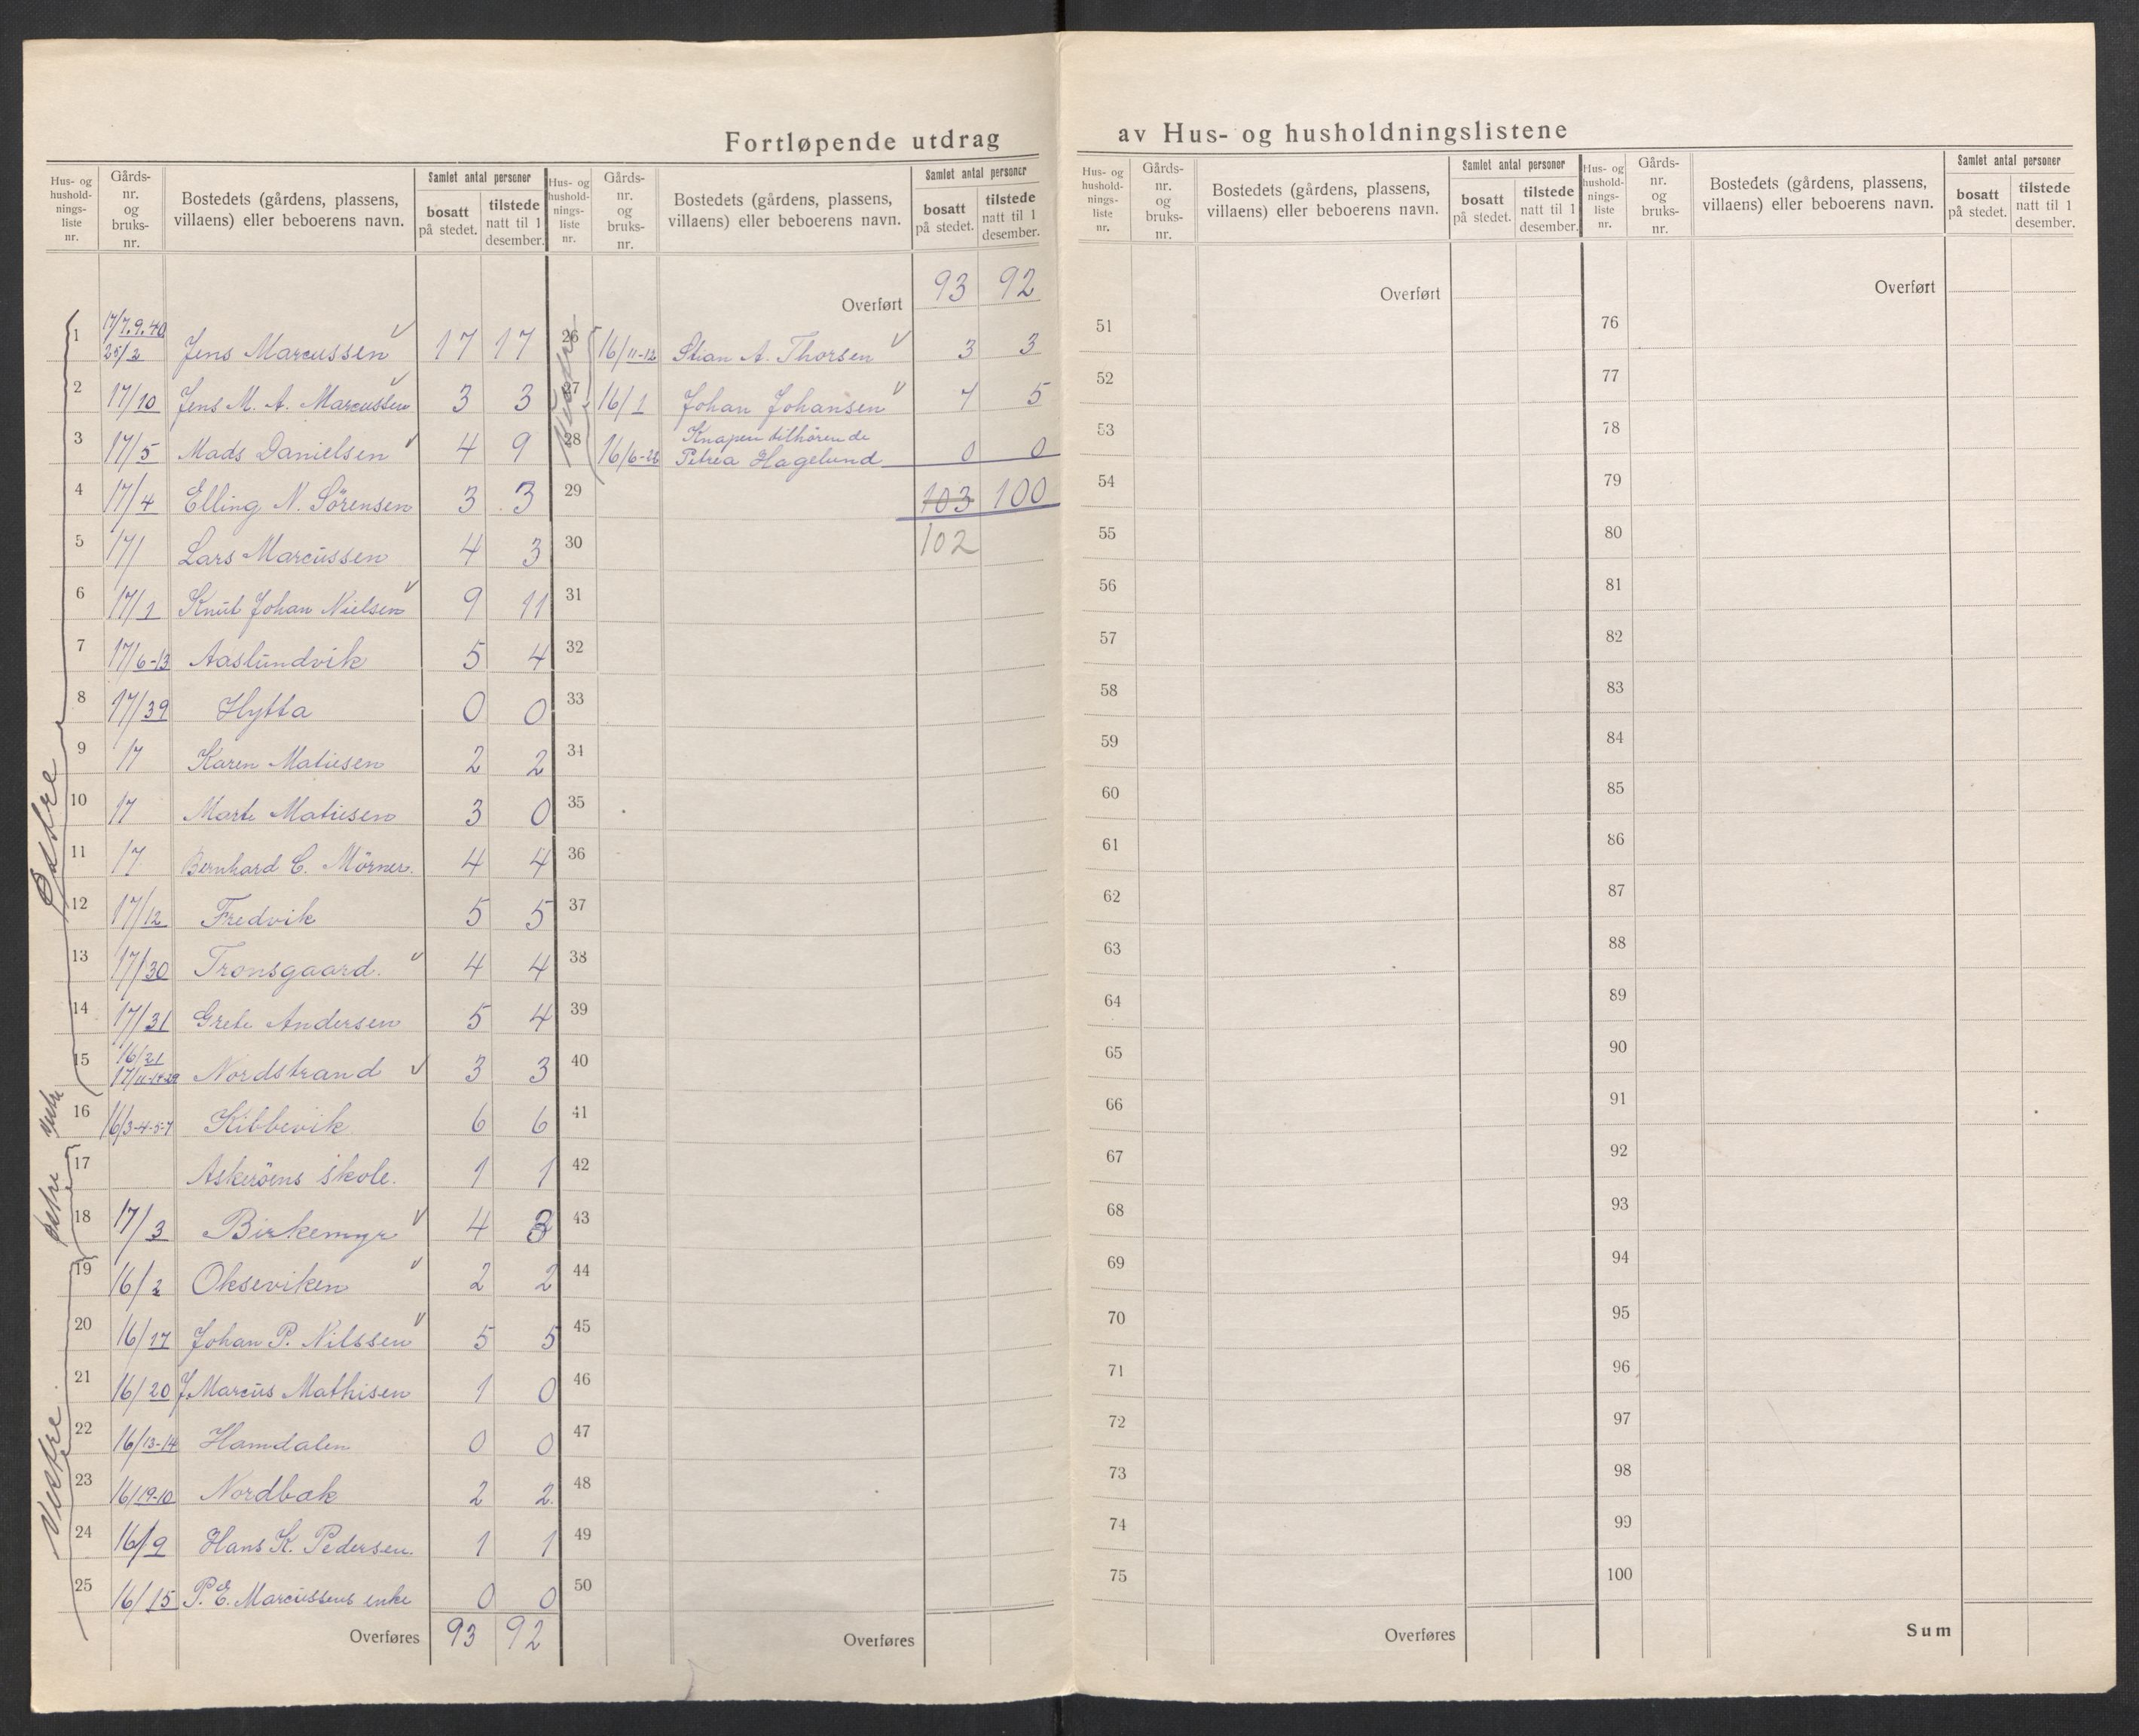 Fortløpende utdrag av Hus- og husholdningslistene
Hus- og husholdningsliste nr. | Gårds-nr. og bruks-nr. | Bostedets (gårdens, plassens, villaens) eller beboerens navn. | Samlet antal personer | bosatt på stedet. | tilstede natt til 1 desember.
Østre
1 17/7.9.40 25/2 Jens Marcussen 17 17
2 17/10 Jens M. A. Marcussen 3 3
3 17/5 Mads Danielsen 4 9
4 17/4 Elling N. Sörensen 3 3
5 17/ Lars Marcussen 4 3
6 17/1 Knut Johan Nielsen 9 11
7 17/6-13 Aaslundvik 5 4
8 17/39 Hytta 0 0
9 17 Karen Matiesen 2 2
10 17 Marte Matiesen 3 0
11 17 Bernhard C. Mörner. 4 4
12 17/12 Fredvik 5 5
13 17/30 Tronsgaard. 4 4
14 17/31 Grete Andersen 5 4
15 16/21 17/11-19-29 Nordstrand 3 3
Vestre
16 16/3-4-5-7 Kibbevik 6 6
Østre
17 Askeröens skole. 1 1
18 17/3 Birkemyr 4 3
Vestre.
19 16/2 Okseviken 2 2
20 16/17 Johan P. Nilssen 5 5
21 16/20 J. Marcus Mathisen 1 0
22 16/13-14 Hamdalen 0 0
23 16/19-10 Nordbak 2 2.
24 16/9 Hans K. Pedersen. 1 1
25 16/15 P. E. Marcussens enke 0 0
Overføres 93 92
Hus- og husholdningsliste nr. | Gårds-nr. og bruks-nr. | Bostedets (gårdens, plassens, villaens) eller beboerens navn. | Samlet antal personer | bosatt på stedet. | tilstede natt til 1 desember.
Overført 93 92
Vestre
26 16/11-12 Stian A. Thorsen 3 3
27 16/1 Johan Johansen 7 5
28 16/6-22 Knapen tilhörende
Petrea Hagelund 0 0
29 103 100
30 102
31
32
33
34
35
36
37
38
39
40
41
42
43
44
45
46
47
48
49
50
Overføres
Hus- og husholdningsliste nr. | Gårds-nr. og bruks-nr. | Bostedets (gårdens, plassens, villaens) eller beboerens navn. | Samlet antal personer | bosatt på stedet. | tilstede natt til 1 desember.
Overført
51
52
53
54
55
56
57
58
59
60
61
62
63
64
65
66
67
68
69
70
71
72
73
74
75
Overføres
Hus- og husholdningsliste nr. | Gårds-nr. og bruks-nr. | Bostedets (gårdens, plassens, villaens) eller beboerens navn. | Samlet antal personer | bosatt på stedet. | tilstede natt til 1 desember.
Overført
76
77
78
79
80
81
82
83
84
85
86
87
88
89
90
91
92
93
94
95
96
97
98
99
100
Sum